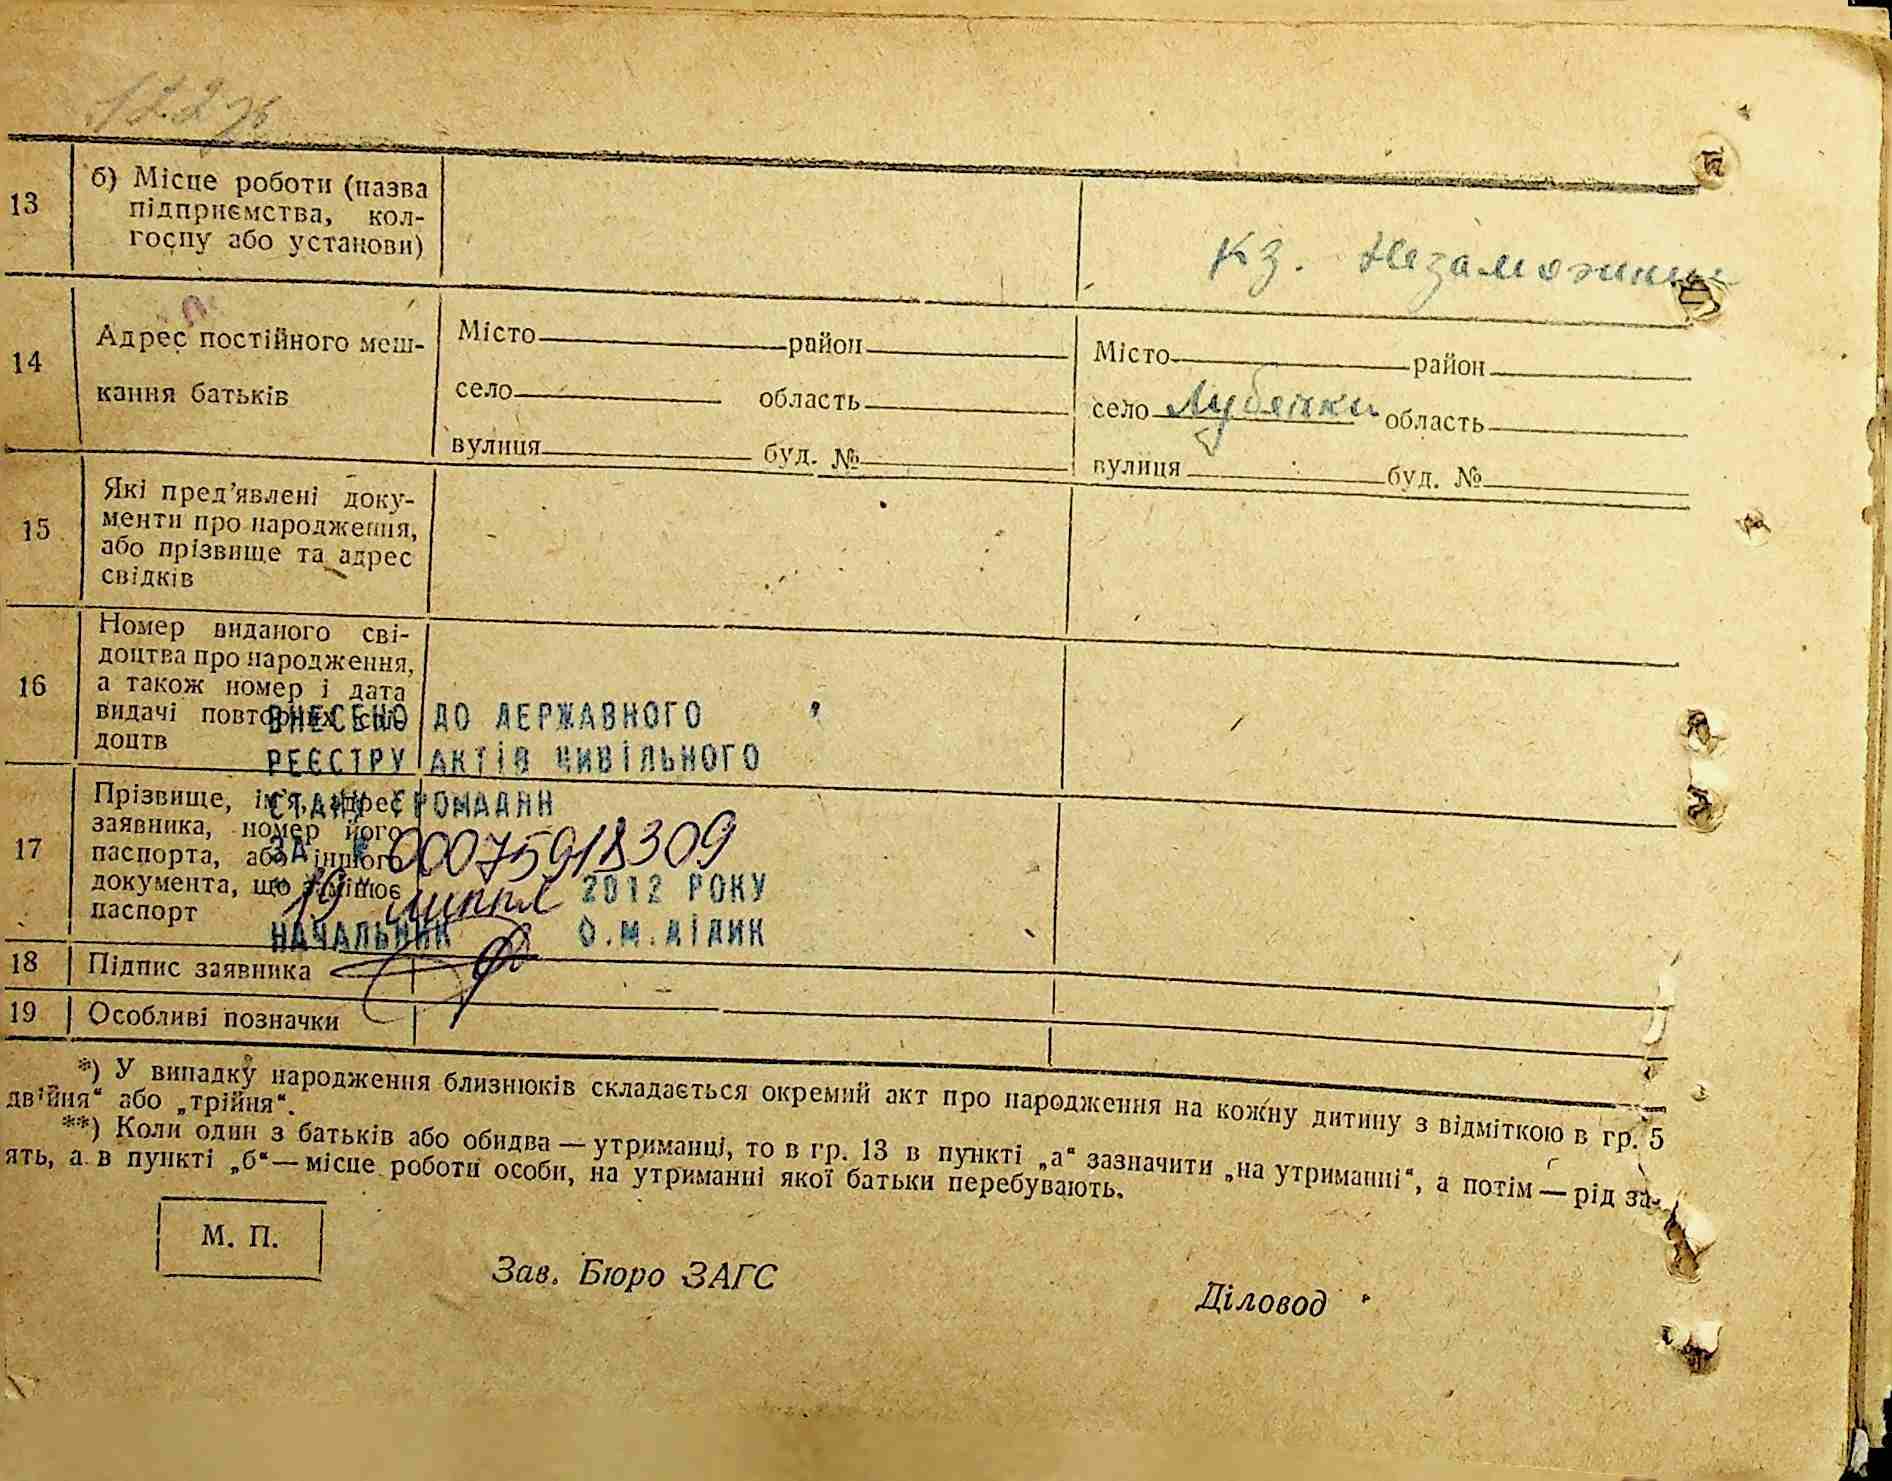 122
13
б) Місце роботи (назва
підприємства, кол-
госпу або установи)
кз. Незаможник
14
Адрес постійного меш-
кання батьків
Місто район
село область
вулиця буд. №
Місто район
село Лубянки область
вулиця буд. №
15
Які пред’явлені доку-
менти про народження,
або прізвище та адрес
свідків
16
Номер виданого сві-
доцтва про народження,
а також номер і дата
видачі повторних сві-
доцтв
ВНЕСЕНО ДО ДЕРЖАВНОГО
РЕЄСТРУ АКТІВ ЦИВІЛЬНОГО
СТАНУ ГРОМАДЯН
ЗА № 00075918309
19 липня 2012 РОКУ
НАЧАЛЬНИК О.М.ДІДИК
17
Прізвище, ім’я, адрес
заявника, номер його
паспорта, або іншого
документа, що замінює
паспорт
18 Підпис заявника
19 Особливі позначки
*) У випадку народження близнюків складається окремий акт про народження на кожну дитину з відміткою в гр. 5
двійня“ або „трійня“.
**) Коли один з батьків або обидва — утриманці, то в гр. 13 в пункті „а“ зазначити „на утриманні“, а потім — рід за-
ять, а в пункті „б“ — місце роботи особи, на утриманні якої батьки перебувають.
М. П.
Зав. Бюро ЗАГС
Діловод